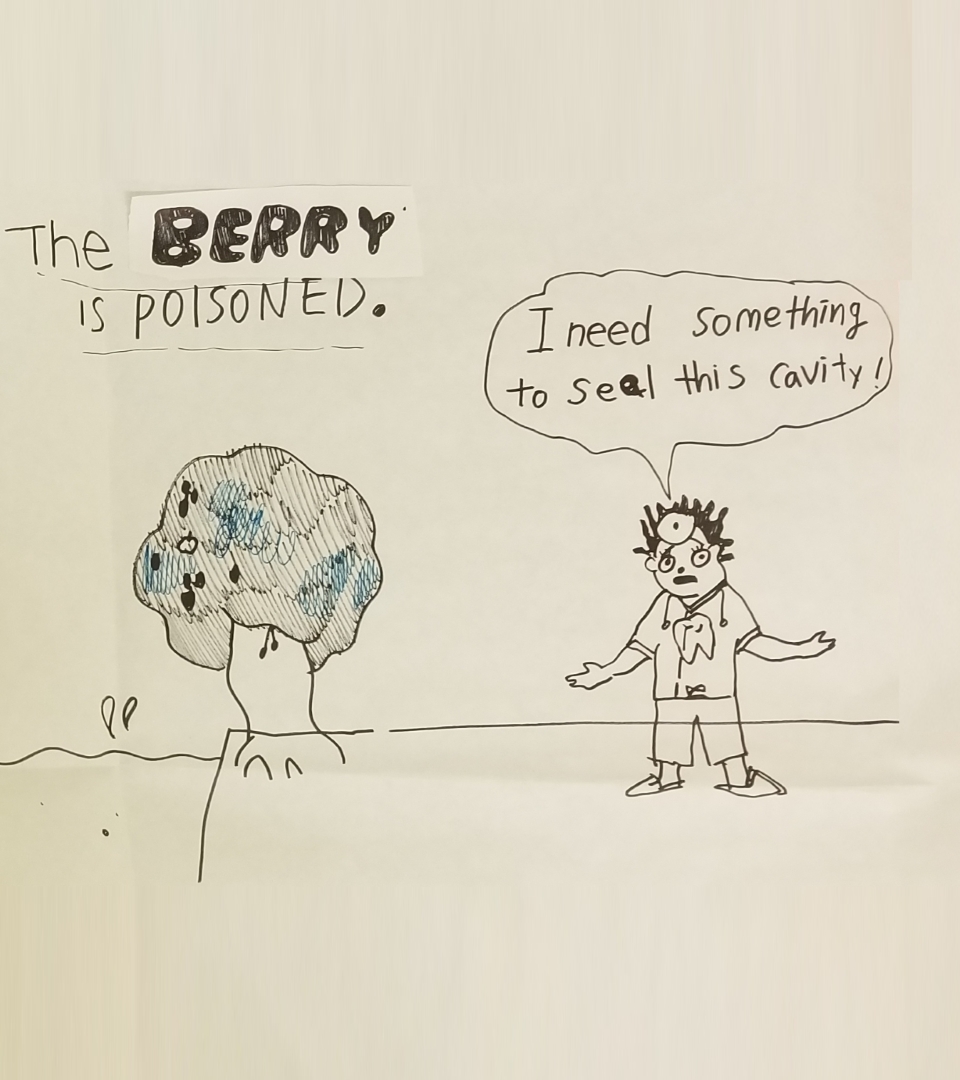 The BERRY
IS POISONED.
I need something
to seal this cavity!